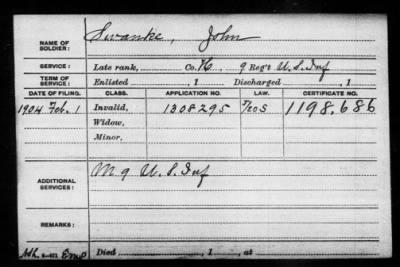 NAME OF SOLDIER: Swanke, John
SERVICE: Late rank, Co. H, 9 Reg't U.S. Inf
TERM OF SERVICE: Enlisted , 1 Discharged , 1
DATE OF FILING. CLASS. APPLICATION NO. LAW. CERTIFICATE NO.
1904 Feb. 1 Invalid, 1308295 1198.686
Widow,
Minor,
ADDITIONAL SERVICES: M 9 U.S. Inf
REMARKS:
Died , 1 , at